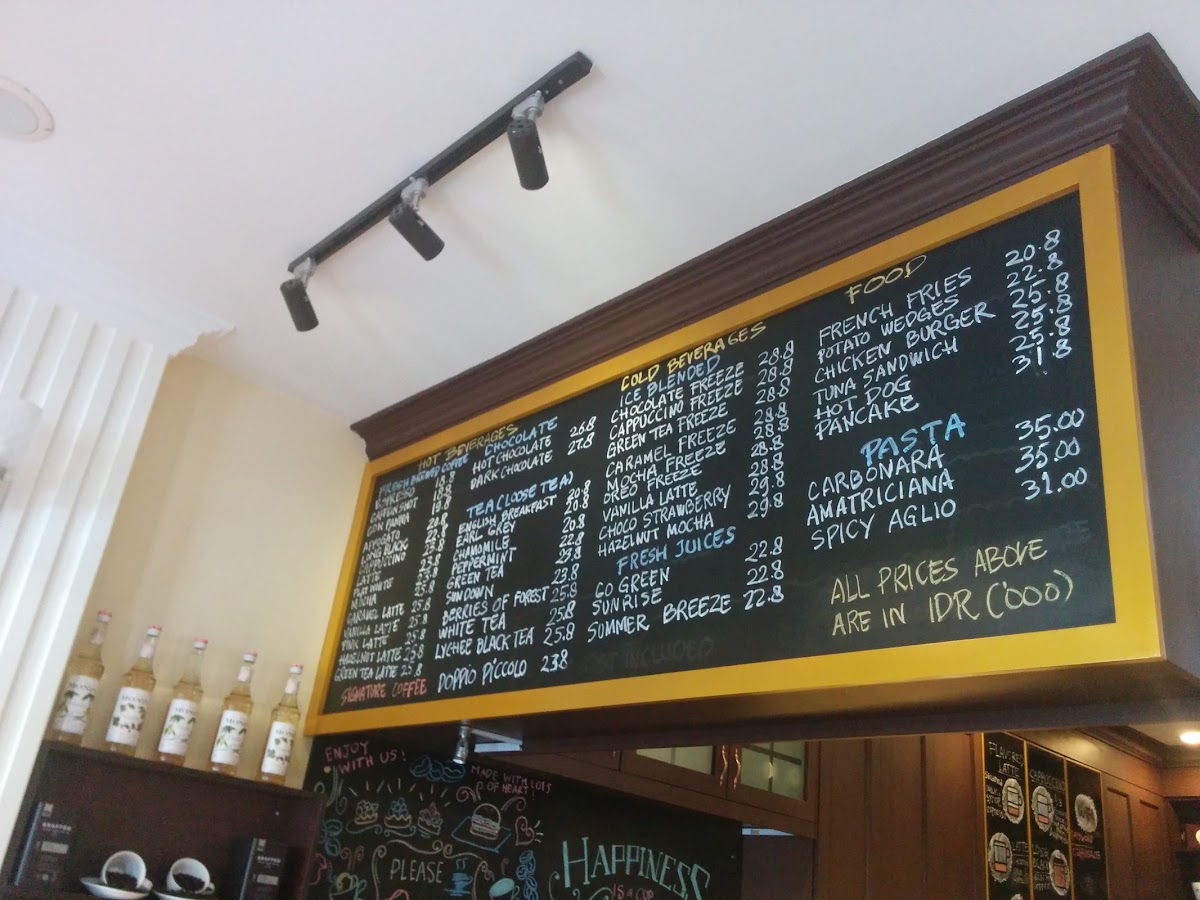 HOT BEVERAGES
FRESH BREWED COFFEE
ESPRESSO 18.8
CON PANNA
LONG BLACK
CAPPUCCINO
LATTE
FLAT WHITE
MOCHA 25.8
CARAMEL LATTE 25.8
VANILLA LATTE 25.8
PINK LATTE 25.8
HAZELNUT LATTE 25.8
GREEN TEA LATTE 25.8
SIGNATURE COFFEE DOPPIO PICCOLO 23.8
CHOCOLATE
HOT CHOCOLATE 26.8
DARK CHOCOLATE 27.8
TEA (LOOSE TEA)
ENGLISH BREAKFAST 20.8
EARL GREY 20.8
CHAMOMILE 20.8
PEPPERMINT 22.8
GREEN TEA 23.8
SUNDOWN 23.8
BERRIES OF FOREST 25.8
WHITE TEA 25.8
LYCHEE BLACK TEA 25.8
COLD BEVERAGES
ICE BLENDED
CHOCOLATE FREEZE 28.8
CAPPUCCINO FREEZE 28.8
GREEN TEA FREEZE 28.8
CARAMEL FREEZE 28.8
MOCHA FREEZE 28.8
OREO FREEZE 28.8
VANILLA LATTE 28.8
CHOCO STRAWBERRY 29.8
HAZELNUT MOCHA 29.8
FRESH JUICES
GO GREEN 22.8
SUNRISE 22.8
SUMMER BREEZE 22.8
FOOD
FRENCH FRIES 20.8
POTATO WEDGES 22.8
CHICKEN BURGER 25.8
TUNA SANDWICH 25.8
HOT DOG 25.8
PANCAKE 31.8
PASTA
CARBONARA 35.00
AMATRICIANA 35.00
SPICY AGLIO 31.00
ALL PRICES ABOVE
ARE IN IDR ('000)
ENJOY
WITH US!
MADE WITH LOTS
OF HEART!
PLEASE
HAPPINESS
IS A CUP
FLAVORED
LATTE
CAPPUCCINO